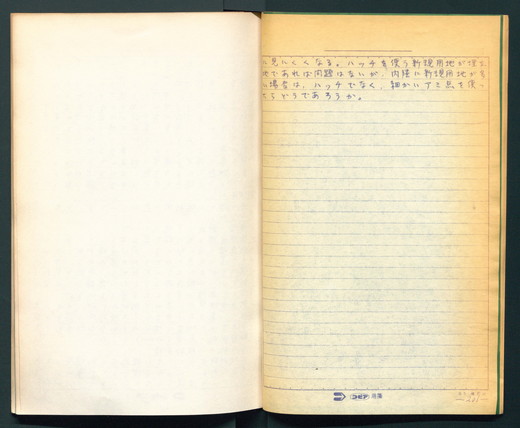 に見にくくなる。ハッチを使う新規用地が埋立
地であれば問題はないが、内陸に新規用地が
場合は、ハッチでなく、細かいアミ点を使っ
たらどうであろうか。
コピア